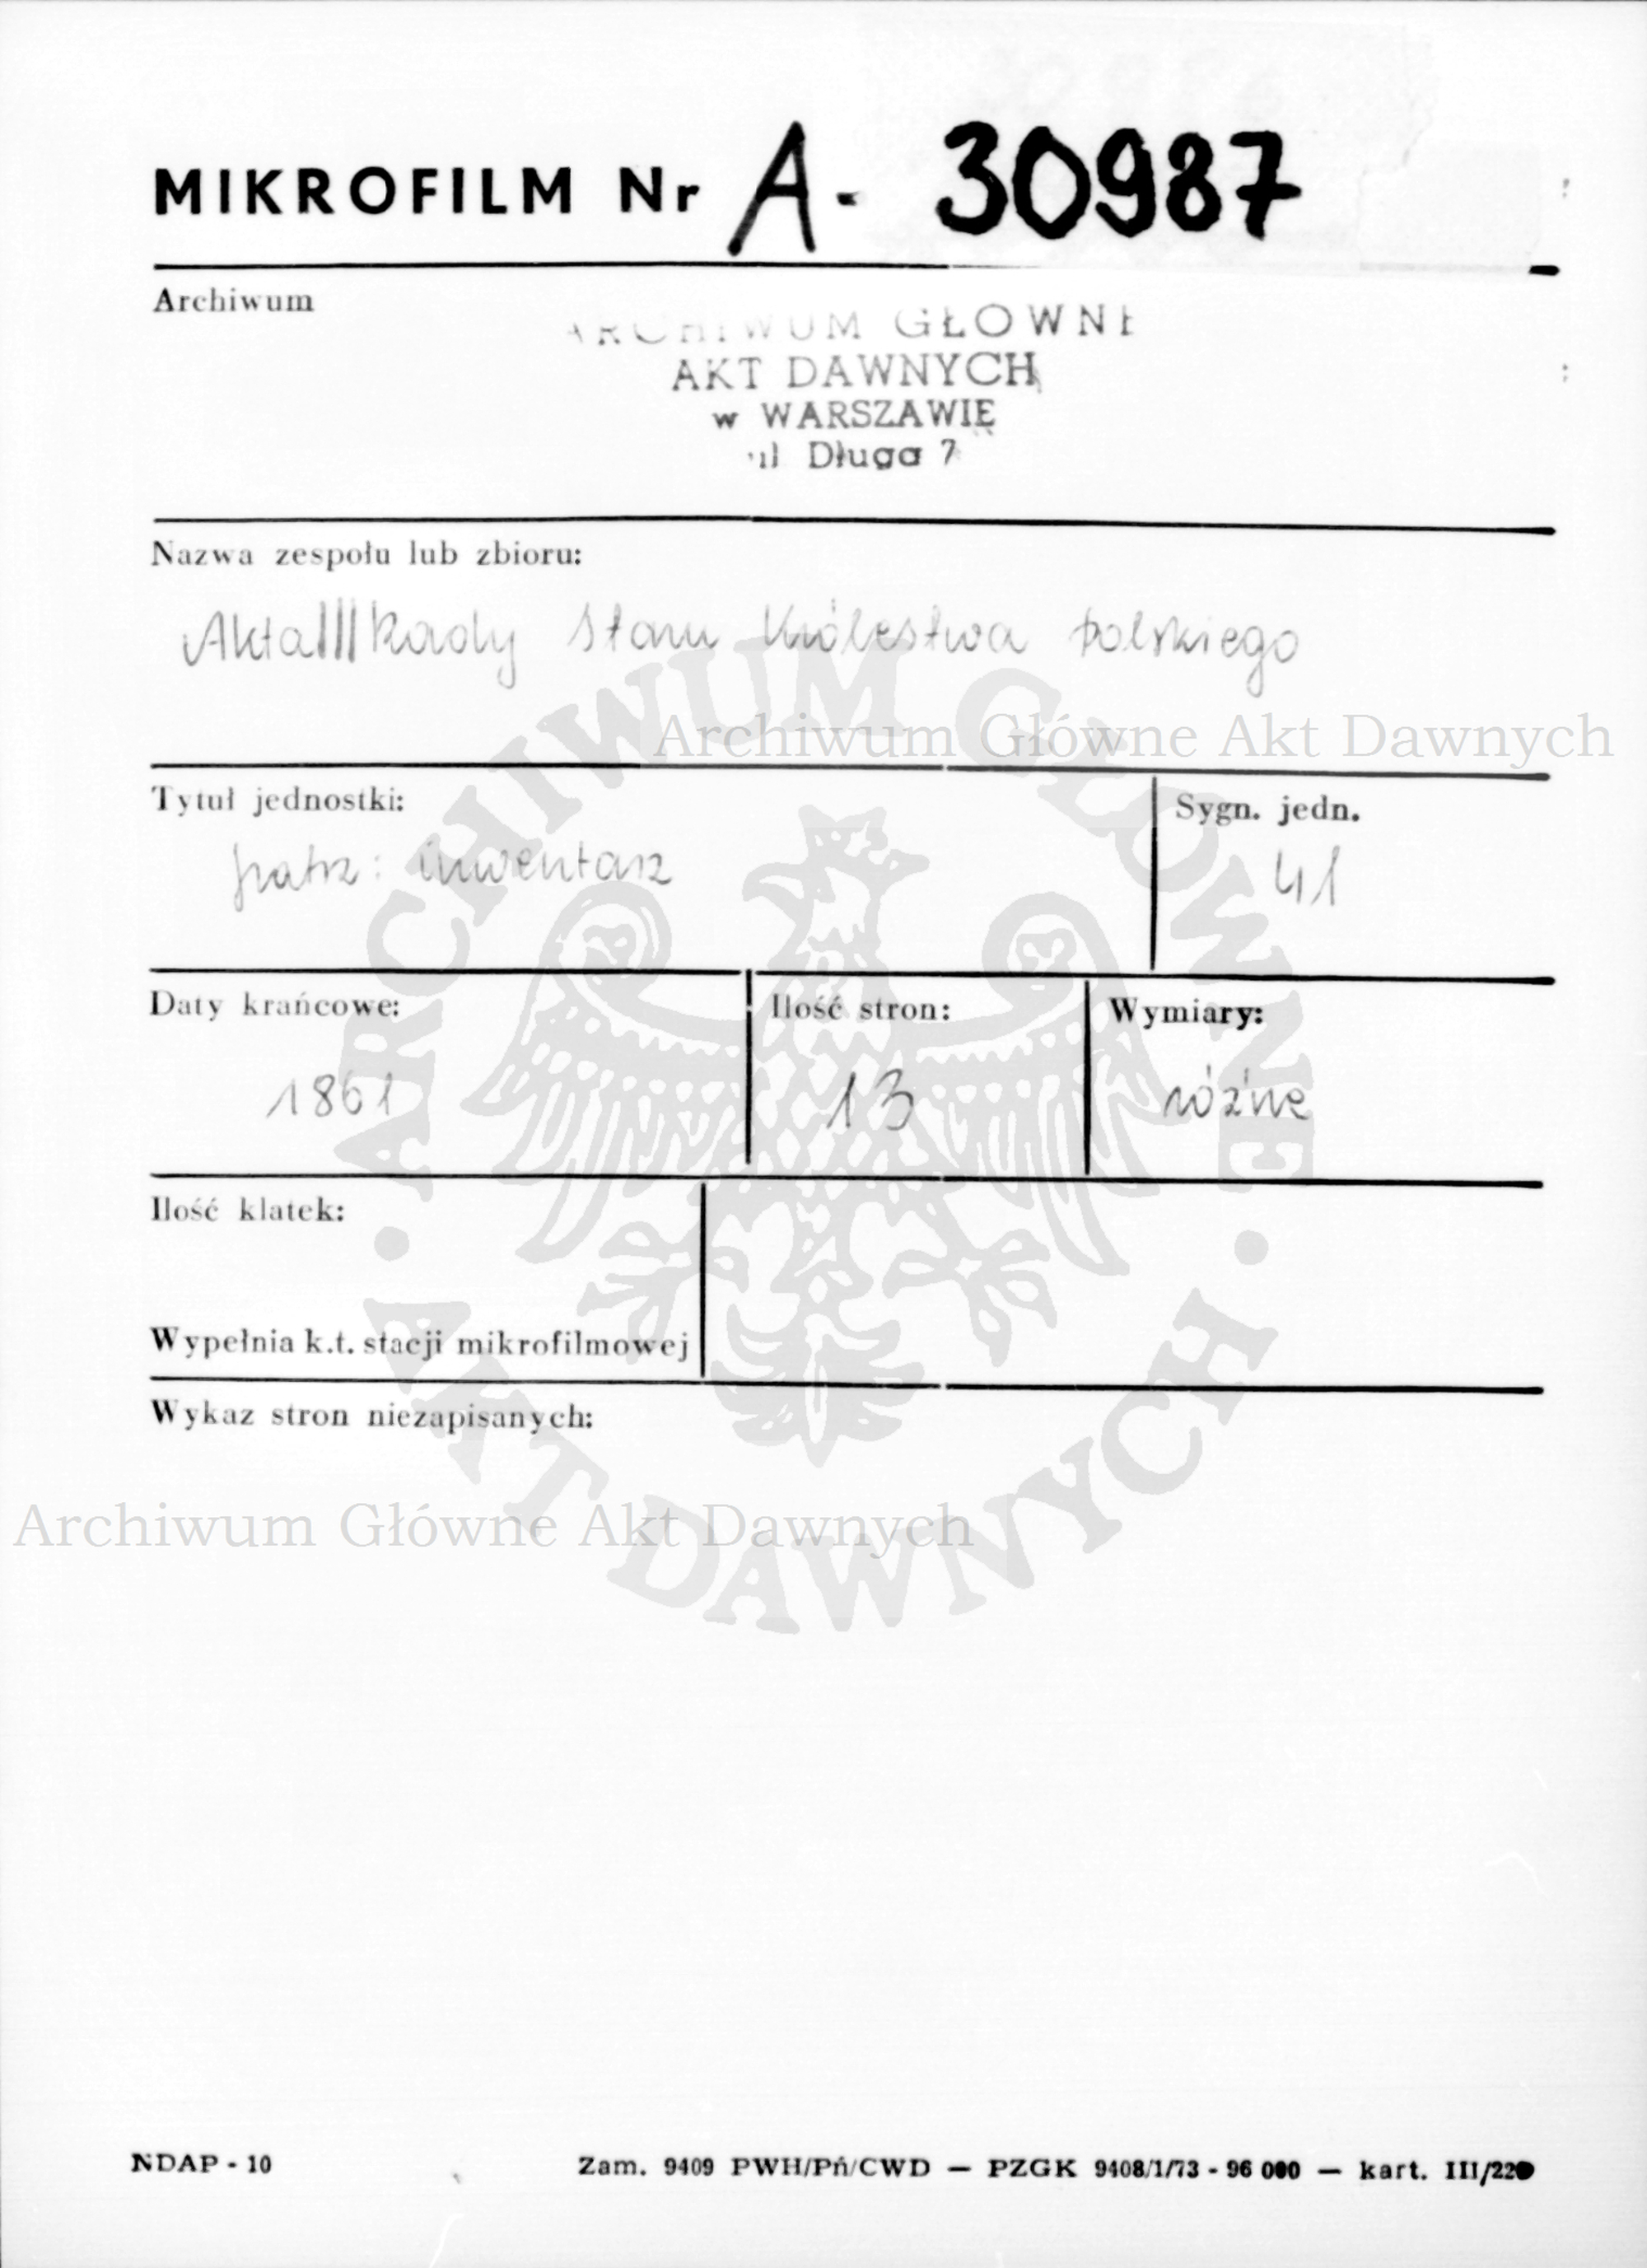 MIKROFILM Nr A- 30987
Archiwum
ARCHIWUM GŁOWNE
AKT DAWNYCH
w WARSZAWIE
ul Długa 7
Nazwa zespołu lub zbioru:
Akta III Rady Stanu Królestwa Polskiego
Archiwum Główne Akt Dawnych
Tytuł jednostki:
patrz: inwentarz
Sygn. jedn.
41
Daty krańcowe:
1861
Ilość stron:
13
Wymiary:
różne
Ilość klatek:
Wypełnia k.t. stacji mikrofilmowej
Wykaz stron niezapisanych:
Archiwum Główne Akt Dawnych
ARCHIWUM GŁÓWNE · AKT DAWNYCH ·
NDAP - 10
Zam. 9409 PWH/Pń/CWD — PZGK 9408/1/73 - 96 000 — kart. III/220